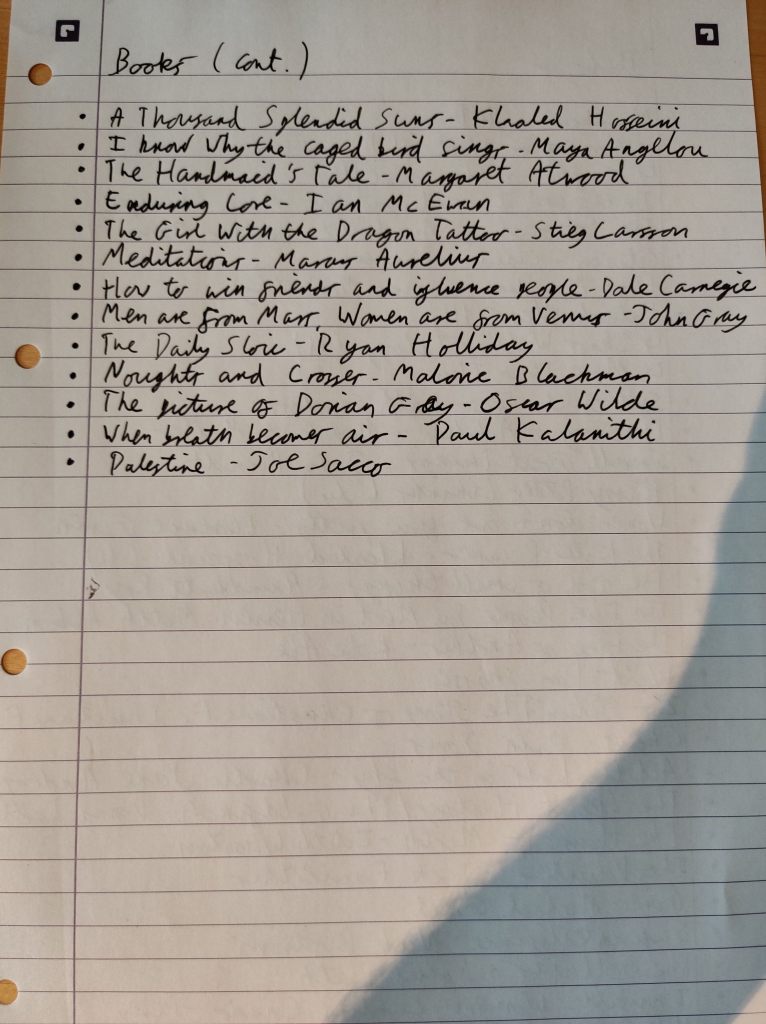 Books (cont.)
• A Thousand Splendid Suns - Khaled Hosseini
• I know Why the caged bird sings - Maya Angelou
• The Handmaid's Tale - Margaret Atwood
• Enduring Love - Ian McEwan
• The Girl With the Dragon Tattoo - Stieg Larsson
• Meditations - Marcus Aurelius
• How to win friends and influence people - Dale Carnegie
• Men are from Mars, Women are from Venus - John Gray
• The Daily Stoic - Ryan Holliday
• Noughts and Crosses - Malorie Blackman
• The picture of Dorian Gray - Oscar Wilde
• When breath becomes air - Paul Kalanithi
• Palestine - Joe Sacco